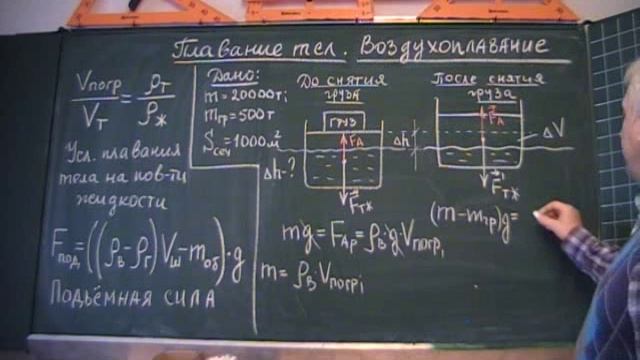 Плавание тел. Воздухоплавание
Vпогр/Vт = ρт/ρж
Усл. плавания
тела на пов-ти
жидкости
Fпод=((ρв-ρг)Vш-mоб)·g
Подъёмная сила
Дано:
m=20000т;
mгр=500т
Sсеч=1000м²
Δh-?
До снятия
груза
груз
FА
Fт*
Δh
После снятия
груза
FА
ΔV
Fт*
mg=FАр=ρв·g·Vпогр1
m=ρв·Vпогр1
(m-mгр)g=